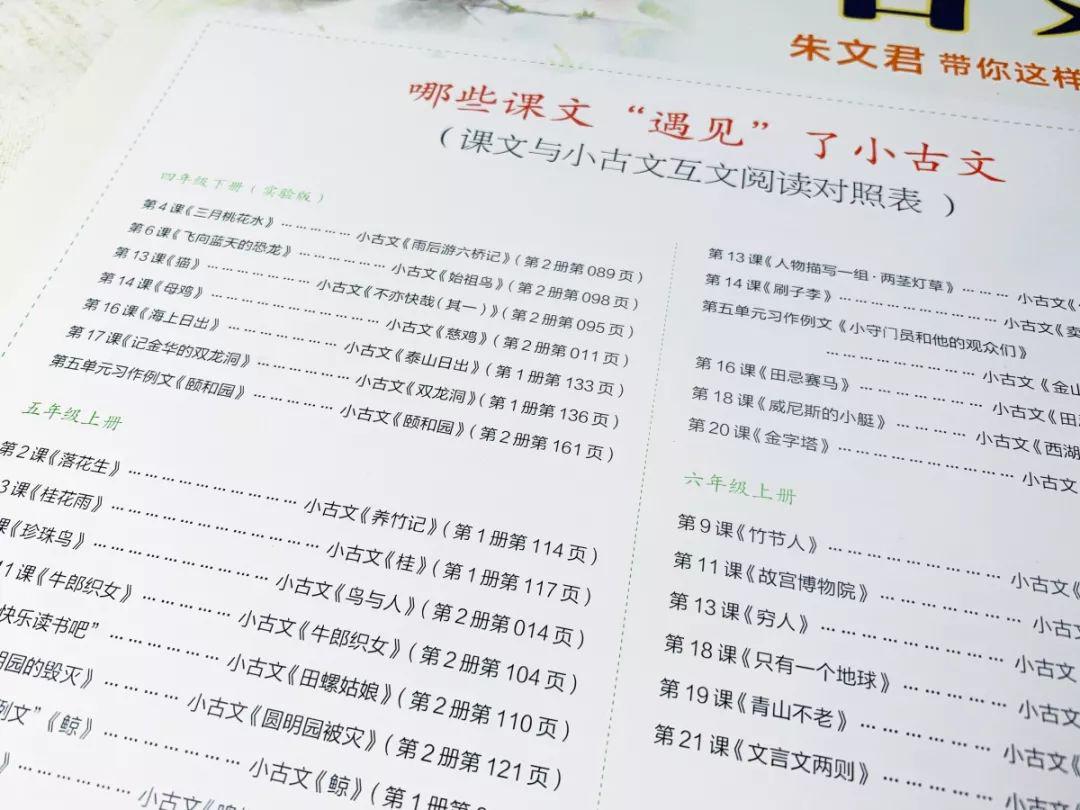 朱文君 带你这样
哪些课文“遇见”了小古文
（课文与小古文互文阅读对照表）
四年级下册（实验版）
第4课《三月桃花水》………………小古文《雨后游六桥记》（第2册第089页）
第6课《飞向蓝天的恐龙》………………小古文《始祖鸟》（第2册第098页）
第13课《猫》………………小古文《不亦快哉（其一）》（第2册第095页）
第14课《母鸡》………………小古文《慈鸡》（第2册第011页）
第16课《海上日出》………………小古文《泰山日出》（第1册第133页）
第17课《记金华的双龙洞》………………小古文《双龙洞》（第1册第136页）
第五单元习作例文《颐和园》………………小古文《颐和园》（第2册第161页）
五年级上册
第2课《落花生》………………小古文《养竹记》（第1册第114页）
3课《桂花雨》………………小古文《桂》（第1册第117页）
课《珍珠鸟》………………小古文《鸟与人》（第2册第014页）
11课《牛郎织女》………………小古文《牛郎织女》（第2册第104页）
快乐读书吧”………………小古文《田螺姑娘》（第2册第110页）
明园的毁灭》………………小古文《圆明园被灾》（第2册第121页）
例文”《鲸》………………小古文《鲸》（第1册第
》………………小古文《
第13课《人物描写一组·两茎灯草》…………小古文《
第14课《刷子李》………………小古文《卖
第五单元习作例文《小守门员和他的观众们》
………………小古文《金山
第16课《田忌赛马》………………小古文《田忌
第18课《威尼斯的小艇》…………小古文《西湖
第20课《金字塔》………………小古文
六年级上册
第9课《竹节人》………………小古文《
第11课《故宫博物院》………………小古
第13课《穷人》………………小古文
第18课《只有一个地球》………………小古文
第19课《青山不老》………………小古文
第21课《文言文两则》………………小古文